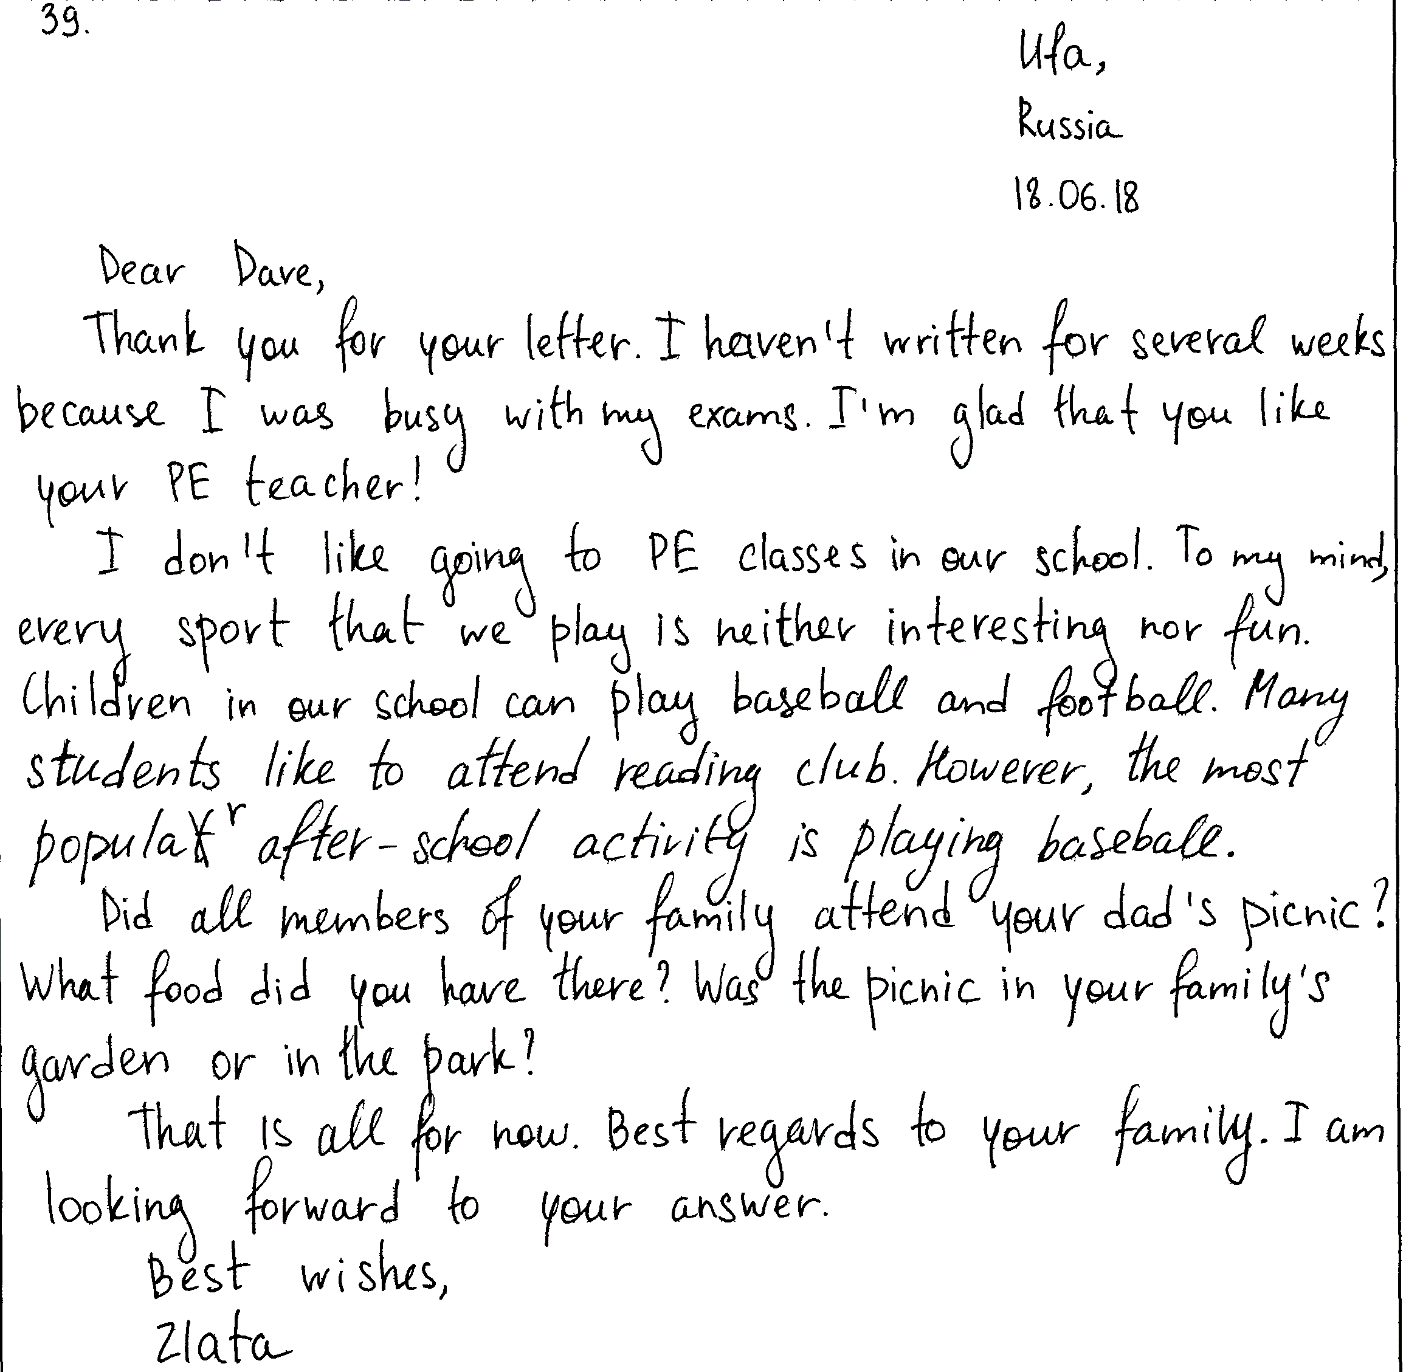 39.
Ufa,
Russia
18.06.18
Dear Dave,
Thank you for your letter. I haven't written for several weeks
because I was busy with my exams. I'm glad that you like
your PE teacher!
I don't like going to PE classes in our school. To my mind,
every sport that we play is neither interesting nor fun.
Children in our school can play baseball and football. Many
students like to attend reading club. However, the most
popular after-school activity is playing baseball.
Did all members of your family attend your dad's picnic?
What food did you have there? Was the picnic in your family's
garden or in the park?
That is all for now. Best regards to your family. I am
looking forward to your answer.
Best wishes,
Zlata